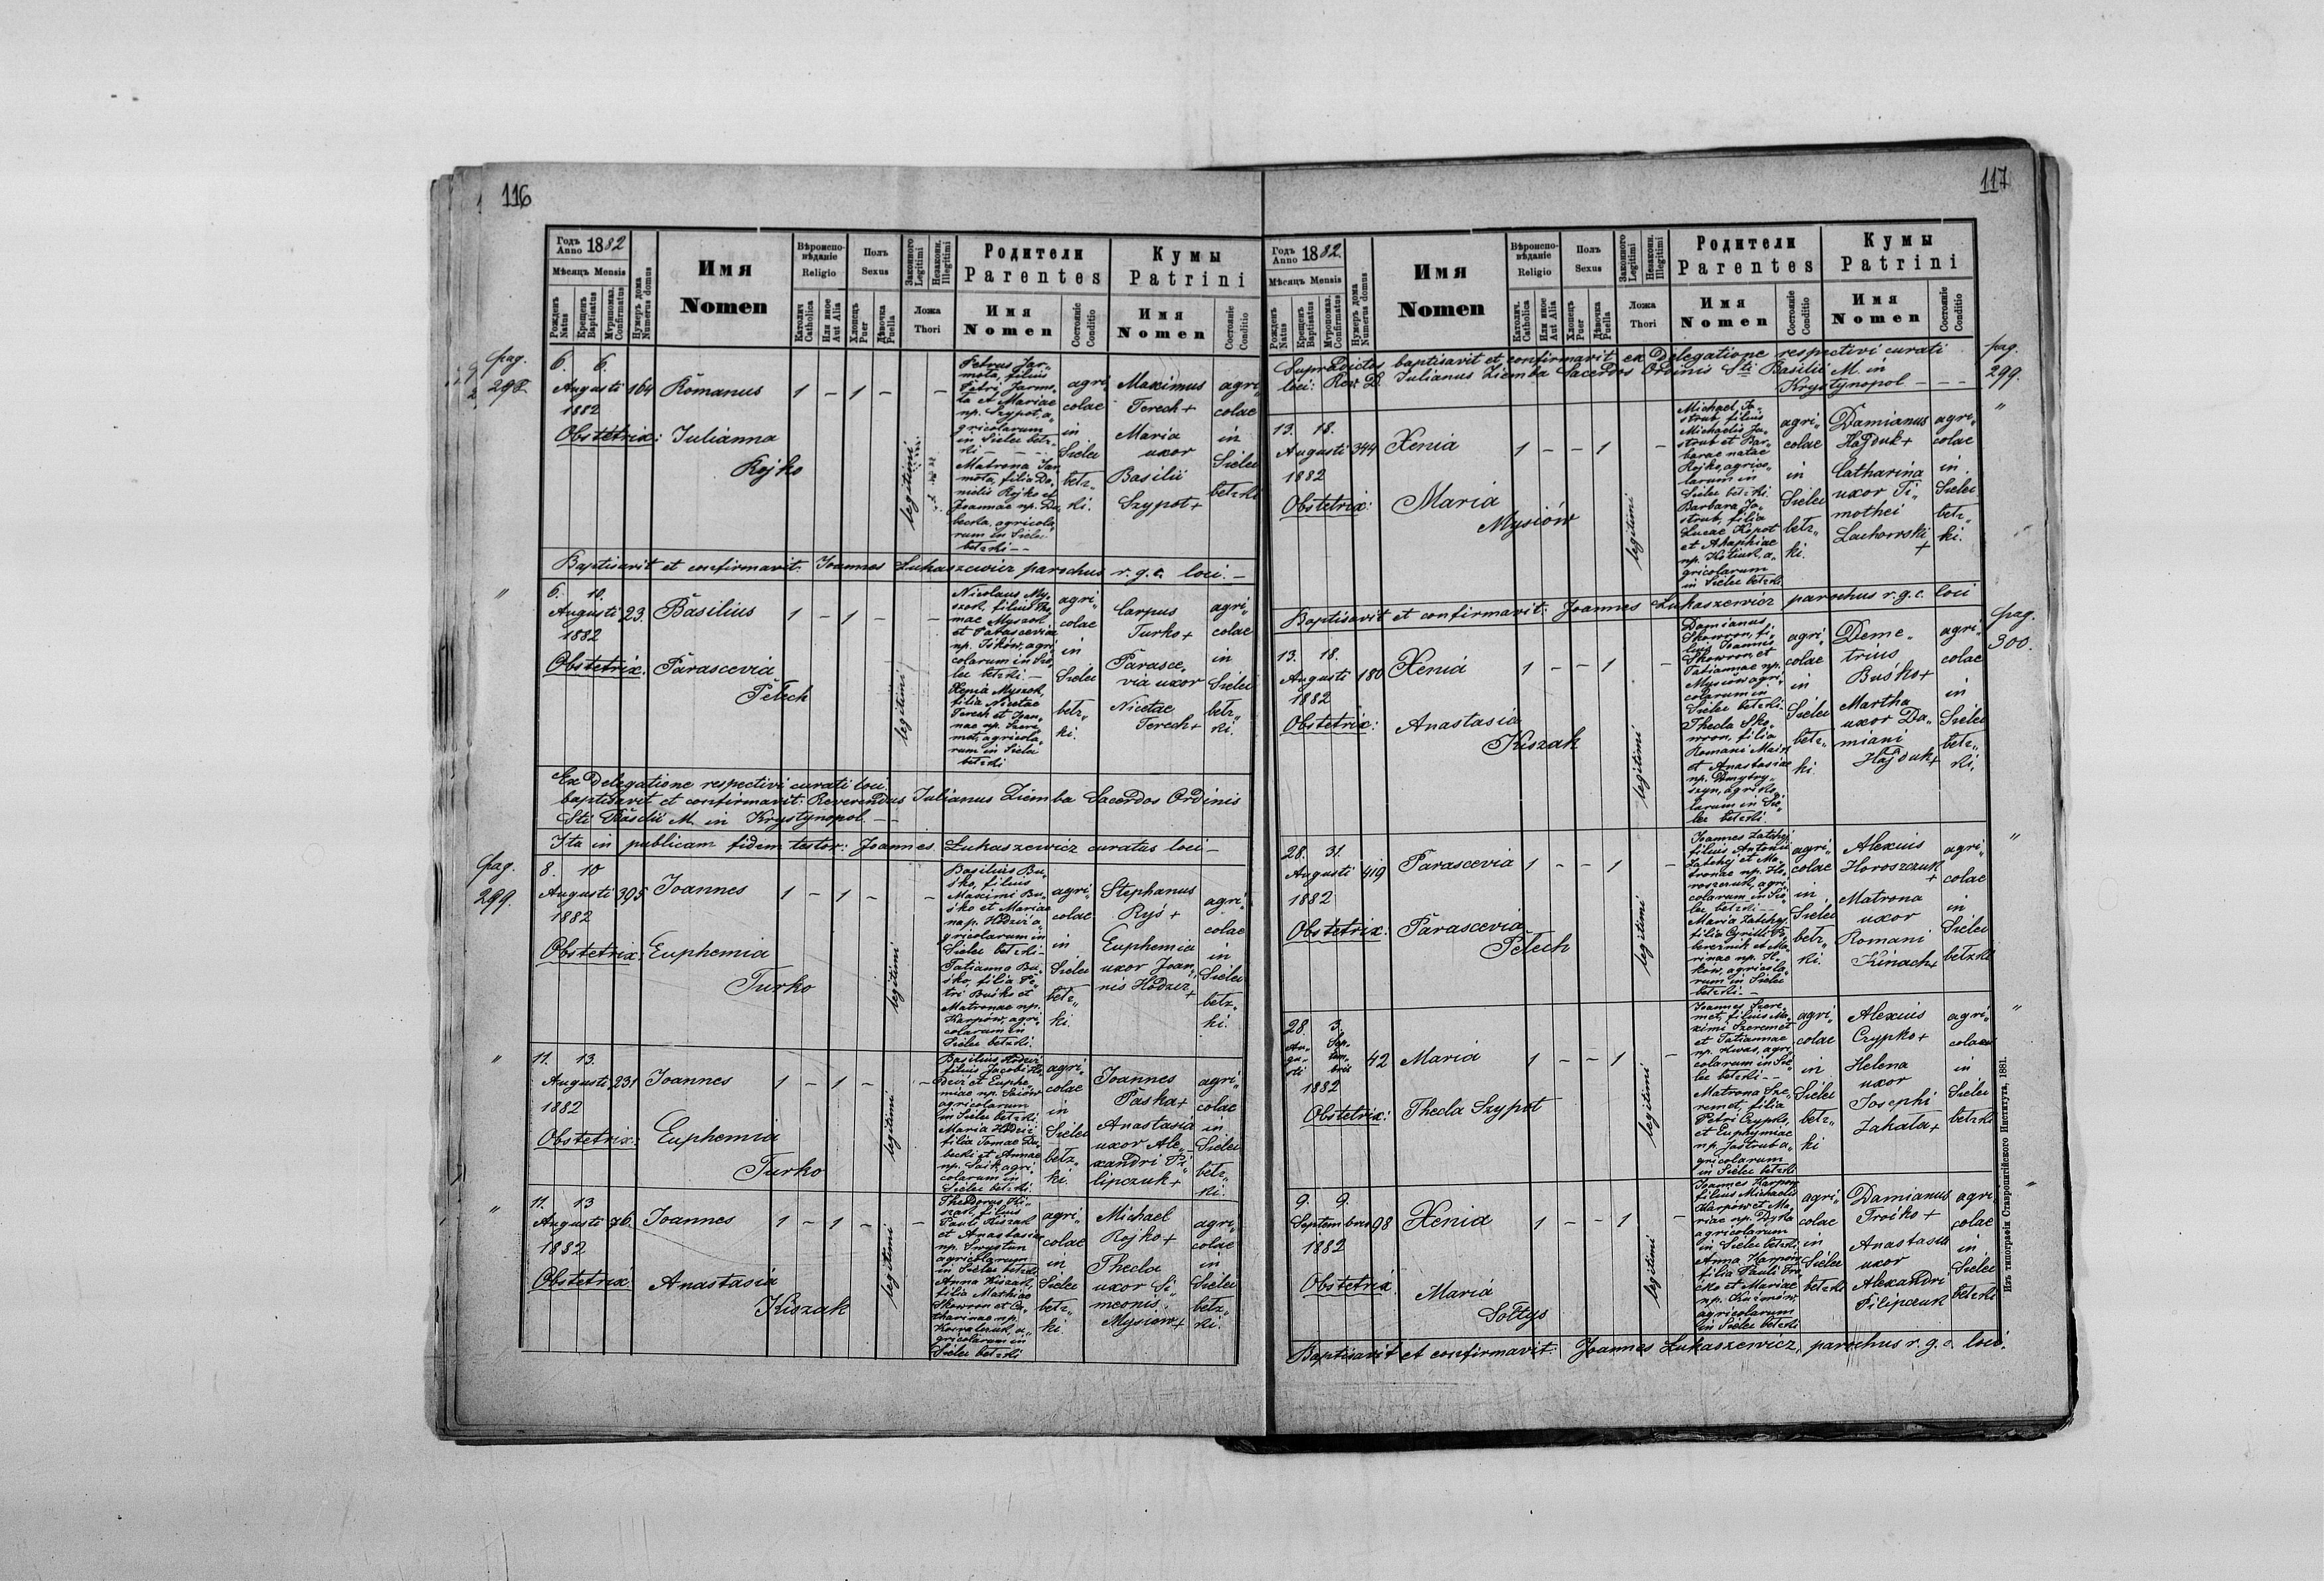 116
Годъ Anno 1882
Мѣсяцъ Mensis
Рожденъ Natus
Крещенъ Baptisatus
Муропомаз. Confirmatus
Нумеръ дома Numerus domus
Имя
Nomen
Вѣроиспо-
вѣданіе
Religio
Католич Catholica
Или иное Aut Alia
Полъ
Sexus
Хлопецъ Puer
Дѣвочка Puella
Законного Legitimi
Незаконн. Illegitimi
Ложа
Thori
Родители
Parentes
Имя
Nomen
Состояніе Conditio
Кумы
Patrini
Имя
Nomen
Состояніе Conditio
pag.
298.
6. 6.
Augusti 164 Romanus 1 – 1 – –
1882
Obstetrix: Julianna
Rojko
legitimi
Petrus Jar-
mota, filius
Petri Jarmo,
ta et Mariae
np. Szypot, a,
gricolarum
in Sielec betz-
ki – – –
Matrona Jar
mota, filia Da,
nielis Rojko et
Joannae np. Du
becka, agricola,
rum in Sielec
betzki – –
agri
colae
in
Sielec
betz„
ki.
Maximus
Terech +
Maria
uxor
Basilii
Szypot +
agri„
colae
in
Sielec
betzki
Baptisavit et confirmavit: Joannes Łukaszewicz parochus r. g. c. loci. –
"
6. 10.
Augusti 23. Basilius 1 – 1 – –
1882
Obstetrix. Parascevia
Petech
legitimi
Nicolaus My,
szok, filius Tho
mae Myszok
et Parasceviae
np. Ilków, agri
colarum in Sie,
lec betzki. –
Xenia Myszok,
filia Nicetae
Terech et Joan,
nae np. Szere
met, agricola,
rum in Sielec
betzki
agri„
colae
in
Sielec
betz„
ki.
Carpus
Turko +
Parasce,
via uxor
Nicetae
Terech +
agri„
colae
in
Sielec
betz„
ki.
Ex Delegatione respectivi curati loci.
baptisavit et confirmavit: Reverendus Julianus Ziemba Sacerdos Ordinis
Sti Basilii M. in Krystynopol – –
Ita in publicam fidem testor: Joannes Łukaszewicz curatus loci –
pag.
299.
8. 10
Augusti 395 Joannes 1 – 1 – –
1882
Obstetrix: Euphemia
Turko
legitimi
Basilius Bu„
śko, filius
Maximi Bu„
śko et Mariae
nap. Hodziź a„
gricolarum in
Sielec betzki –
Tatianna Bu„
śko, filia Pe„
tri Buśko et
Matronae np.
Karpów, agri„
colarum in
Sielec betzki.
agri„
colae
in
Sielec
betz„
ki.
Stephanus
Ryś +
Euphemia
uxor Joan„
nis Hodziź
+
agri„
colae
in
Sielec
betz„
ki.
"
11. 13.
Augusti 231 Joannes 1 – 1 – –
1882
Obstetrix: Euphemia
Turko
legitimi
Basilius, Hodziź
filius Jacobi Ho,
dziź et Euphe„
miae np. Saiów
agricolarum
in Sielec betzki
Maria Hodziź
filia Tomae Du„
becki et Annae
np. Saik, agri„
colarum in
Sielec betzki.
agri„
colae
in
Sielec
betz„
ki.
Joannes
Paska +
Anastasia
uxor Ale„
xandri Pi„
lipczuk +
agri„
colae
in
Sielec
betz„
ki.
"
11. 13
Augusti 76. Joannes 1 – 1 – –
1882
Obstetrix: Anastasia
Kiszak
legitimi
Theodorus Ki„
szak, filius
Pauli Kiszak
et Anastasiae
np. Swystun
agricolarum
in Sielec betzki
Anna Kiszak,
filia Mathiae
Skowron et Ca„
tharinae np.
Kowalczuk, a„
gricolarum in
Sielec betzki
agri„
colae
in
Sielec
betz„
ki.
Michael
Rojko +
Thecla
uxor Si„
meonis
Mysiow +
agri„
colae
in
Sielec
betz„
ki.
117
Годъ Anno 1882.
Мѣсяцъ Mensis
Рожденъ Natus
Крещенъ Baptisatus
Муропомаз. Confirmatus
Нумеръ дома Numerus domus
Имя
Nomen
Вѣроиспо-
вѣданіе
Religio
Католич. Catholica
Или иное Aut Alia
Полъ
Sexus
Хлопецъ Puer
Дѣвочка Puella
Законного Legitimi
Незаконн. Illegitimi
Ложа
Thori
Родители
Parentes
Имя
Nomen
Состояніе Conditio
Кумы
Patrini
Имя
Nomen
Состояніе Conditio
Supradictos baptisavit et confirmavit ex Delegatione respectivi curati
loci: Rev. D. Julianus Ziemba Sacerdos Ordinis Sti Basilii M. in
Krystynopol – – –
pag.
299.
"
13. 18.
Augusti 344 Xenia 1 – – 1 –
1882
Obstetrix: Maria
Mysiów
legitimi
Michael Ja„
strub, filius
Michaelis Ja„
strub et Bar„
barae natae
Rojko, agrico„
larum in
Sielec betzki.
Barbara Ja„
strub, filia
Lucae Kopot
et Ahaphiae
np. Kotiuk, a„
gricolarum
in Sielec betzki.
agri„
colae
in
Sielec
betz„
ki.
Damianus
Hajduk +
Catharina
uxor Ti„
mothei
Lachowski
+
agri„
colae
in
Sielec
betz„
ki.
Baptisavit et confirmavit: Joannes Łukaszewicz parochus r. g. c. loci
pag.
300.
13. 18.
Augusti 180 Xenia 1 – – 1 –
1882
Obstetrix: Anastasia
Kiszak
legitimi
Damianus
Skowron, fi„
lius Joannis
Skowron et
Tatiannae np.
Mysiow agri„
colarum in
Sielec betzki.
Thecla Sko„
wron, filia
Romani Mais
et Anastasiae
np. Dmytry„
szyn, agrico„
larum in Sie„
lec betzki.
agri„
colae
in
Sielec
betz„
ki.
Deme„
trius
Buśko +
Martha
uxor Da„
miani
Hajduk +
agri„
colae
in
Sielec
betz„
ki.
"
28. 31.
Augusti 419 Parascevia 1 – – 1 –
1882
Obstetrix: Parascevia
Petech
legitimi
Joannes Zatchej
filius Antonii
Zatchej et Ma„
tronae np. Ho„
roszczuk, agri„
colarum in Sie„
lec betzki –
Maria Zatchej,
filia Cyrilli
et Ma„
rinae np.
agricola„
rum in Sielec
betzki –
agri„
colae
in
Sielec
betz„
ki.
Alexius
Horoszczuk
+
Matrona
uxor
Romani
Kinach +
agri„
colae
in
Sielec
betzki
"
28. 3.
Au„ Sep„
gu„ tem„
sti bris 42 Maria 1 – – 1 –
1882
Obstetrix: Thecla Szypot
legitimi
Joannes Szere„
met, filius Ma„
ximi Szeremet
et Tatiannae
np. Kwas, agri„
colarum in Sie„
lec betzki – –
Matrona Sze„
remet, filia
Petri Czypko,
et Euphymiae
np. Jastrub a„
gricolarum
in Sielec betzki
agri„
colae
in
Sielec
betz„
ki
Alexius
Czypko +
Helena
uxor
Josephi
Zakata +
agri„
colae
in
Sielec
betzki
"
9. 9.
Septembris 98 Xenia 1 – – 1 –
1882
Obstetrix. Maria
Sołtys
legitimi
Joannes Karpow
filius Michaelis
Karpów et Ma„
riae np. Dyka
agricolarum
in Sielec betzki,
Anna Karpow
filia Pauli Tro„
śko et Mariae
np. Kuźmów,
agricolarum
in Sielec betzki
agri„
colae
in
Sielec
betzki
Damianus
Trośko +
Anastasia
uxor
Alexandri
Pilipczuk
agri„
colae
in
Sielec
betzki
Baptisavit et confirmavit: Joannes Łukaszewicz, parochus r. g. c. loci.
Изъ типографіи Ставропигійского Института, 1881.